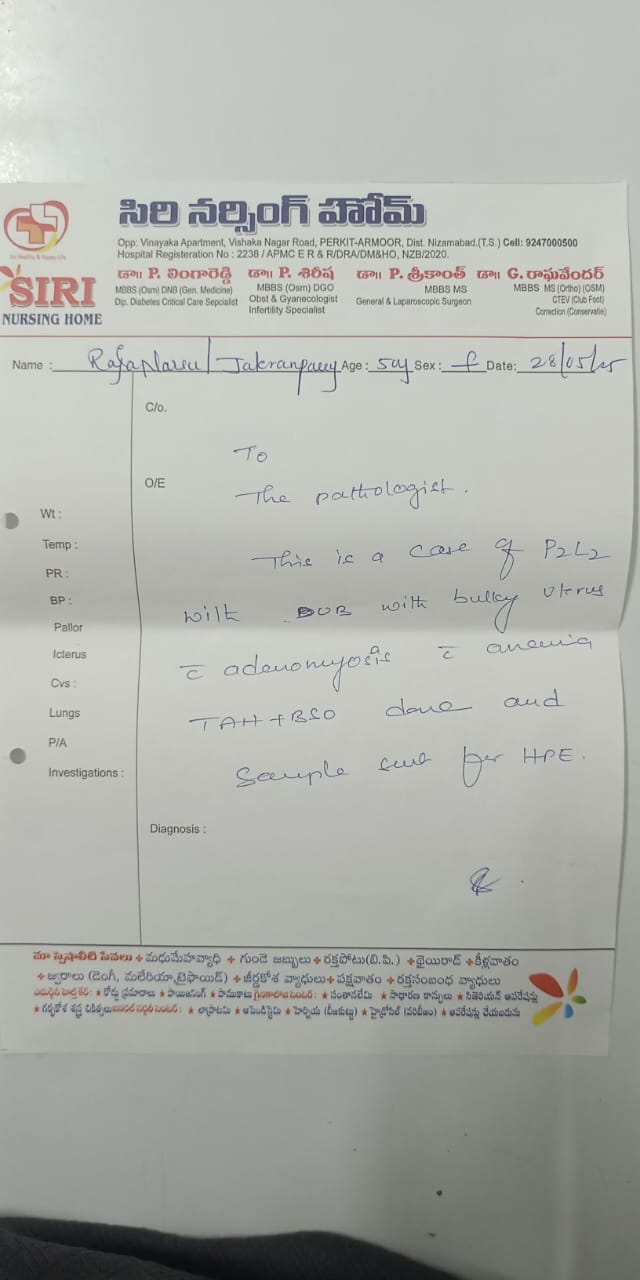 సిరి నర్సింగ్ హోమ్
Be Healthy & Happy Life
SIRI
NURSING HOME
Opp: Vinayaka Apartment, Vishaka Nagar Road, PERKIT-ARMOOR, Dist. Nizamabad.(T.S.) Cell: 9247000500
Hospital Registeration No : 2238 / APMC E R & R/DRA/DM&HO, NZB/2020.
డా॥ P. లింగారెడ్డి డా॥ P. శిరీష డా॥ P. శ్రీకాంత్ డా॥ G. రాఘవేందర్
MBBS (Osm) DNB (Gen. Medicine) MBBS (Osm) DGO MBBS MS MBBS MS (Ortho) (OSM)
Dip. Diabetes Critical Care Sepcialist Obst & Gyanecologist General & Laparoscopic Surgeon CTEV (Club Foot)
Infertility Specialist Correction (Conservatie)
Name : Age : 50y Sex : f Date: 28/05/25
C/o.
To
O/E
The pathologist.
Wt :
Temp :
This is a case of P2L2
PR :
BP :
with DUB with bulky uterus
Pallor
Icterus
c̄ adenomyosis c̄ anemia
Cvs :
Lungs
TAH + BSO done and
P/A
Sample sent for HPE.
Investigations :
Diagnosis :
మా స్పెషాలిటి సేవలు + మధుమేహవ్యాధి + గుండె జబ్బులు + రక్తపోటు(బి.పి.) + థైరాయిడ్ + కీళ్లవాతం
+ జ్వరాలు (డెంగీ, మలేరియా,టైఫాయిడ్) + జీర్ణకోశ వ్యాధులు + పక్షవాతం + రక్తసంబంధ వ్యాధులు
★ రోడ్డు ప్రమాదాలు ★ పాయిజనింగ్ ★ పాముకాటు ★ సంతానలేమి ★ సాధారణ కాన్పులు ★ సిజేరియన్ ఆపరేషన్లు
★ గర్భకోశ శస్త్ర చికిత్సలు ★ అపెండిక్స్ ★ హెర్నియా ★ హైడ్రోసిల్ ★ ఆపరేషన్లు చేయబడును